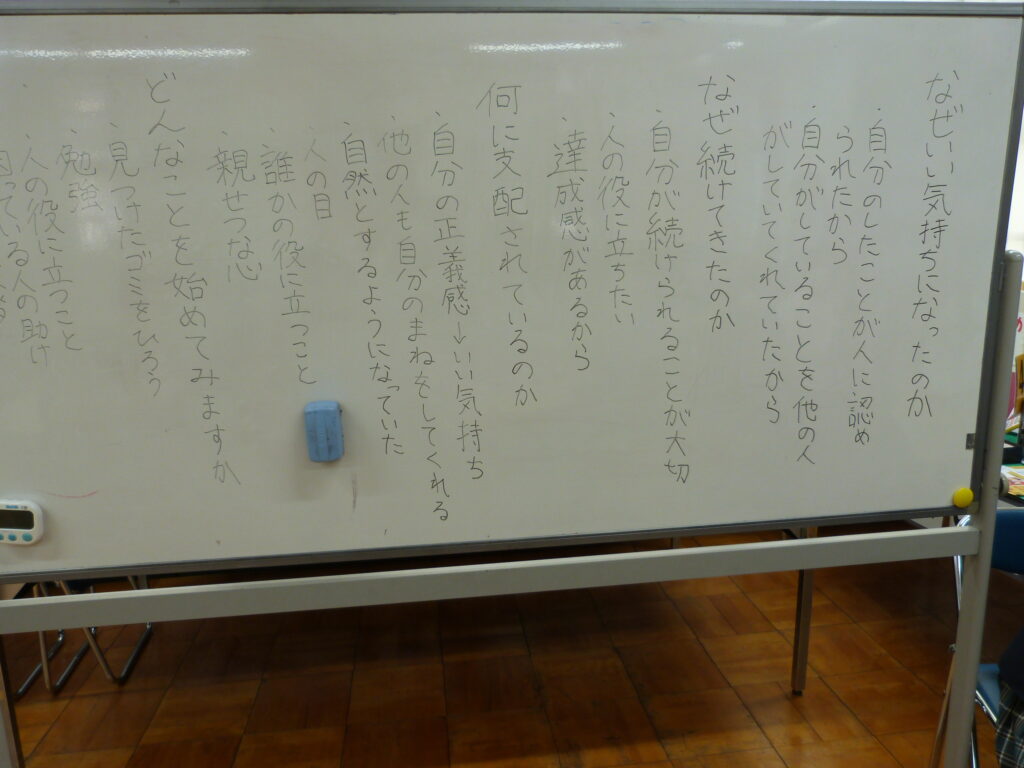 なぜいい気持ちになったのか
・自分のしたことが人に認め
られたから
・自分がしていることを他の人
がしていてくれていたから
なぜ続けてきたのか
・自分が続けられることが大切
・人の役に立ちたい
・達成感があるから
何に支配されているのか
・自分の正義感→いい気持ち
・他の人も自分のまねをしてくれる
自然とするようになっていた
・人の目
・誰かの役に立つこと
・親せつな心
どんなことを始めてみますか
・見つけたゴミをひろう
・勉強
・人の役に立つこと
困っている人の助け